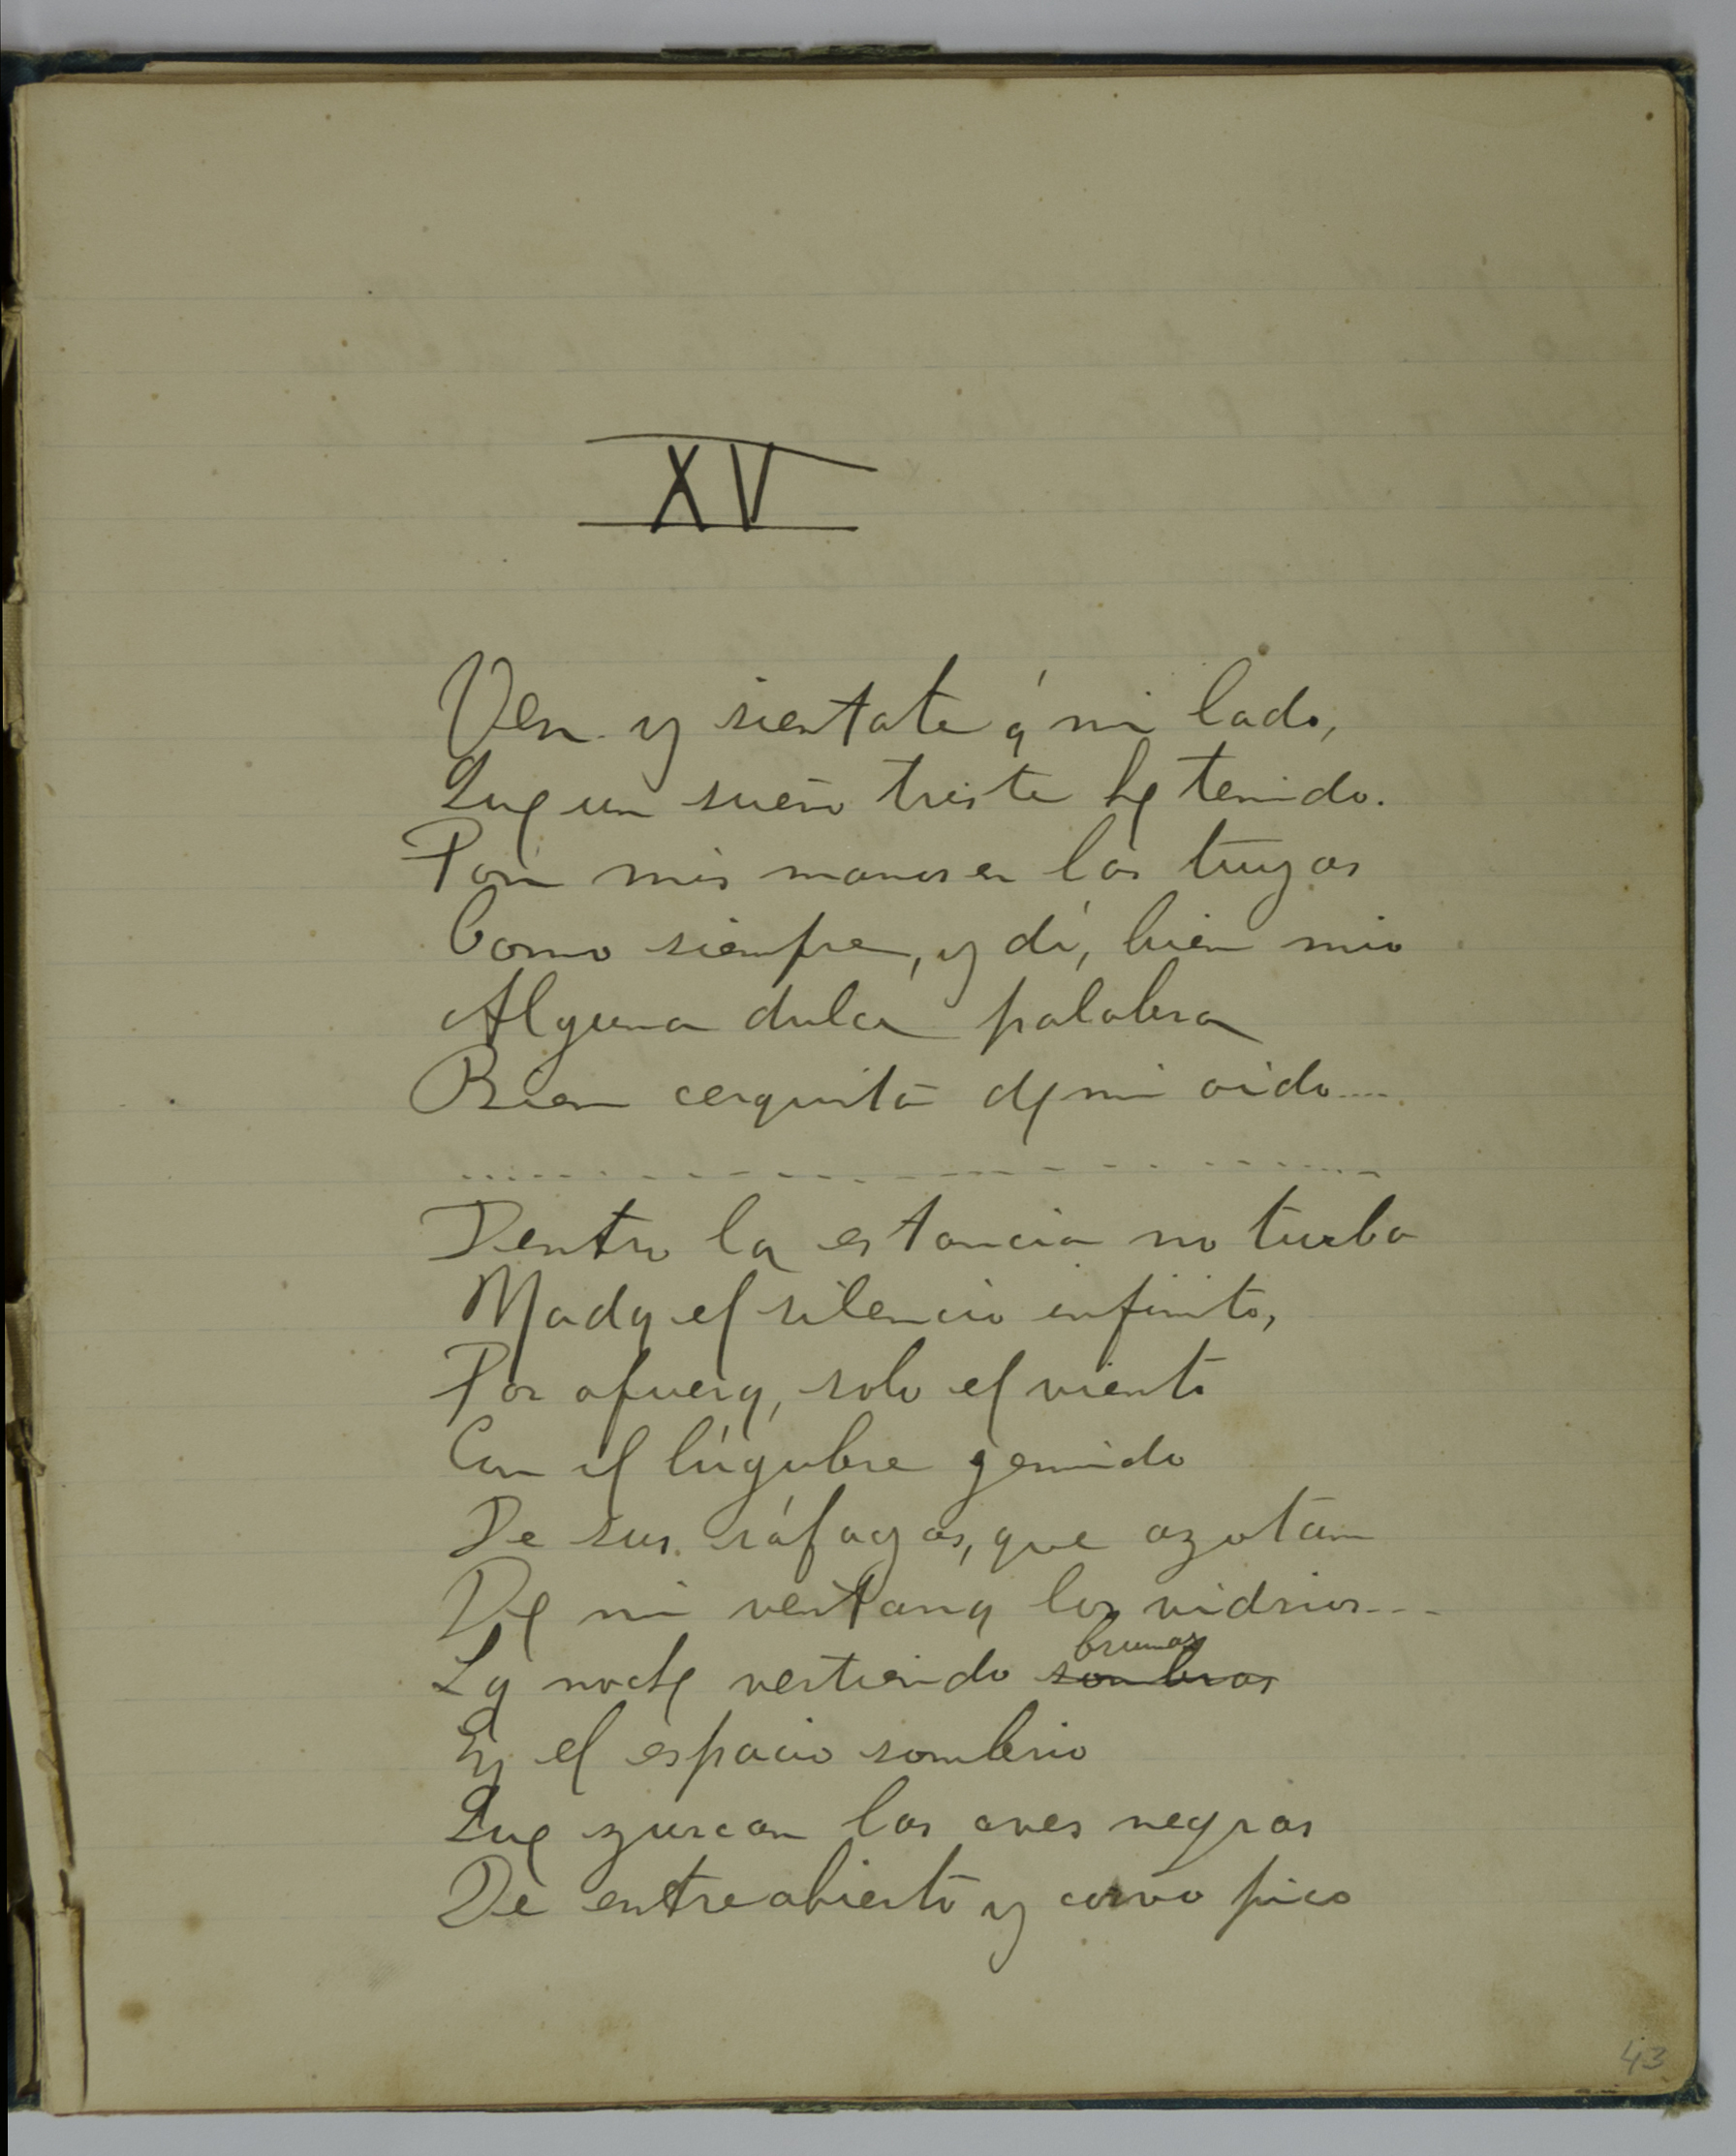 XV
Ven y sientate á mi lado,
Que un sueño triste he tenido.
Pon mis manos en las tuyas
Como siempre, y dí, bien mio
Alguna dulce palabra
Bien cerquita de mi oido....
..............................
Dentro la estancia no turba
Nada el silencio infinito,
Por afuera, solo el viento
Con el lúgubre gemido
De sus ráfagas, que azotan
De mi ventana los vidrios...
brumas
La noche vertiendo sombras
En el espacio sombrio
Que zurcan las aves negras
De entreabierto y corvo pico
43